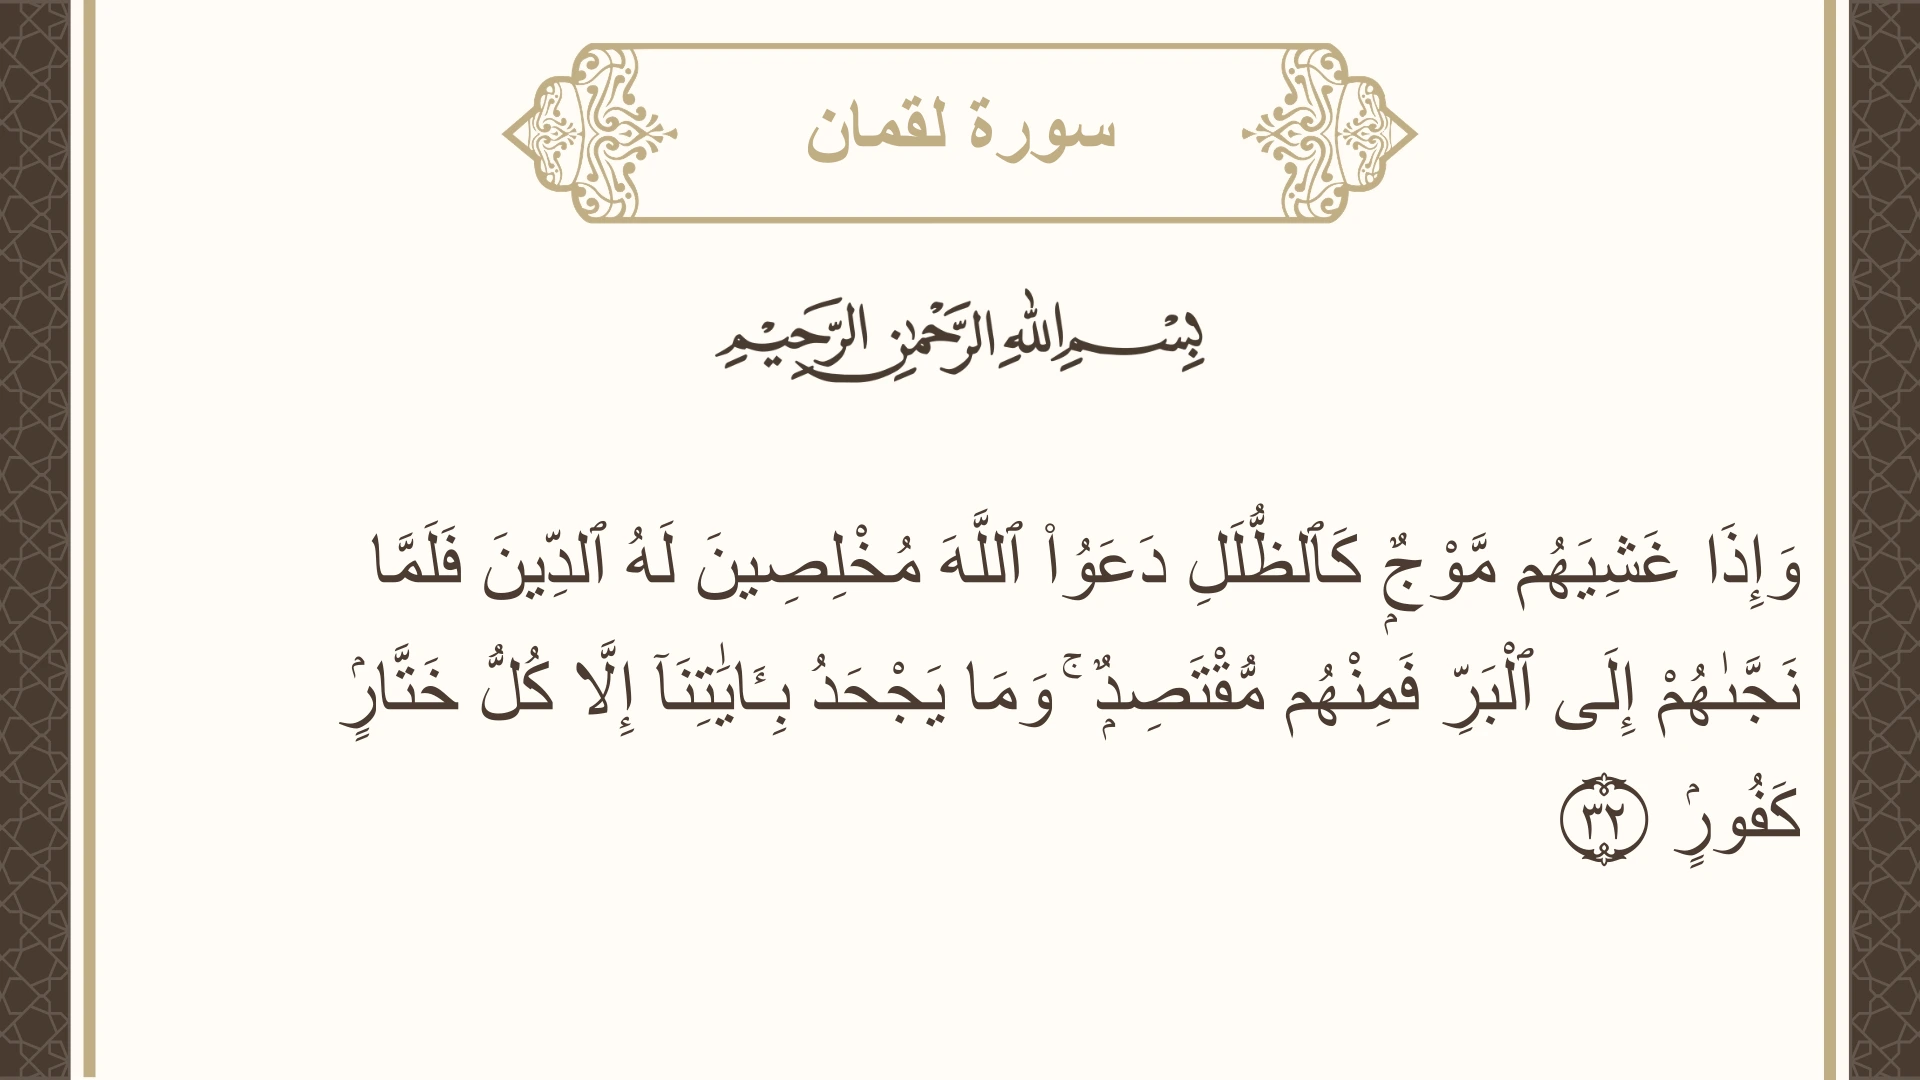 سورة لقمان
بِسْمِ اللهِ الرَّحْمٰنِ الرَّحِيْمِ
وَإِذَا غَشِيَهُم مَّوْجٌۭ كَٱلظُّلَلِ دَعَوُا۟ ٱللَّهَ مُخْلِصِينَ لَهُ ٱلدِّينَ فَلَمَّا
نَجَّىٰهُمْ إِلَى ٱلْبَرِّ فَمِنْهُم مُّقْتَصِدٌۭ ۚ وَمَا يَجْحَدُ بِـَٔايَـٰتِنَآ إِلَّا كُلُّ خَتَّارٍۢ
كَفُورٍۢ ٣٢